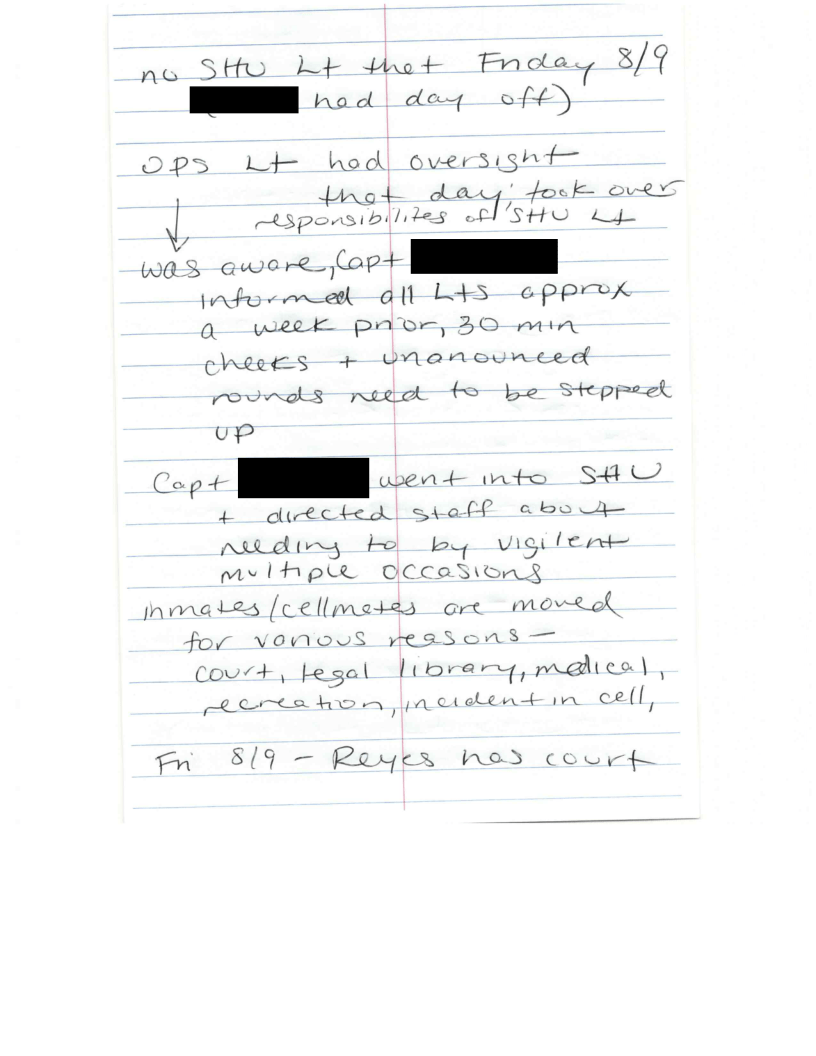 no SHU Lt that Friday 8/9
( had day off)
Ops Lt had oversight
that day, took over
responsibilizes of SHU Lt
was aware, Capt
informed all Lts approx
a week prior, 30 min
cheeks + unanounced
rounds need to be stepped
up
Capt went into SHU
+ directed staff about
needing to by vigilent
multiple occasions
inmates/cellmates are moved
for various reasons —
court, legal library, medical,
recreation, incident in cell,
Fri 8/9 – Reyes has court